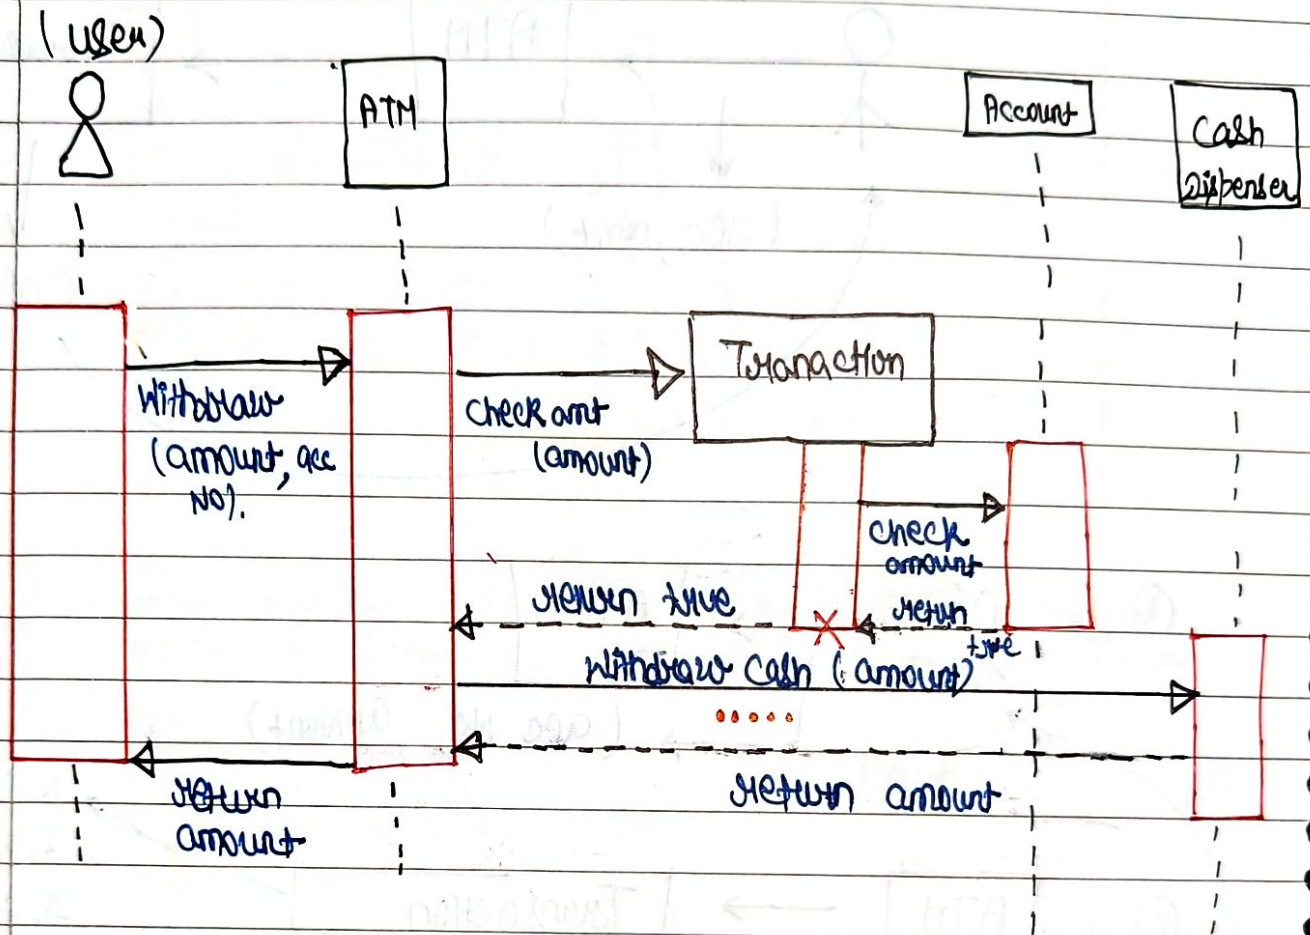 (User)
ATM
Account
Cash
Dispenser
Tranaction
Withdraw
(amount, acc
No).
Check amt
(amount)
check
amount
return true
return
true
Withdraw Cash (amount)
return amount
return
amount